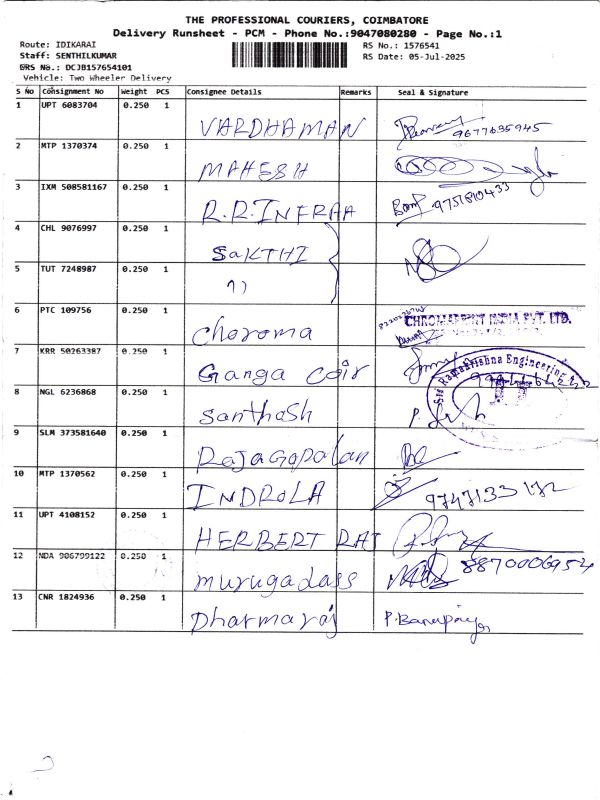 THE PROFESSIONAL COURIERS, COIMBATORE
Delivery Runsheet - PCM - Phone No.:9047080280 - Page No.:1
Route: IDIKARAI RS No.: 1576541
Staff: SENTHILKUMAR RS Date: 05-Jul-2025
DRS No.: DCJB157654101
Vehicle: Two Wheeler Delivery
S No Consignment No Weight PCS Consignee Details Remarks Seal & Signature
1 UPT 6083704 0.250 1 VARDHAMAN 9677635945
2 MTP 1370374 0.250 1 MAHESH
3 IXM 508581167 0.250 1 R.R.INFRAA 9751810433
4 CHL 9076997 0.250 1 SAKTHI
5 TUT 7248987 0.250 1 11
6 PTC 109756 0.250 1 Choroma CHROMAPRINT INDIA PVT. LTD.
7 KRR 50263387 0.250 1 Ganga coir Sri Ramakrishna Engineering
8 NGL 6236868 0.250 1 Santhosh
9 SLM 373581640 0.250 1 Rajagopalan
10 MTP 1370562 0.250 1 INDROLA 9747133172
11 UPT 4108152 0.250 1 HERBERT RAJ
12 NDA 906799122 0.250 1 murugadass 8870006954
13 CNR 1824936 0.250 1 Dharmaraj